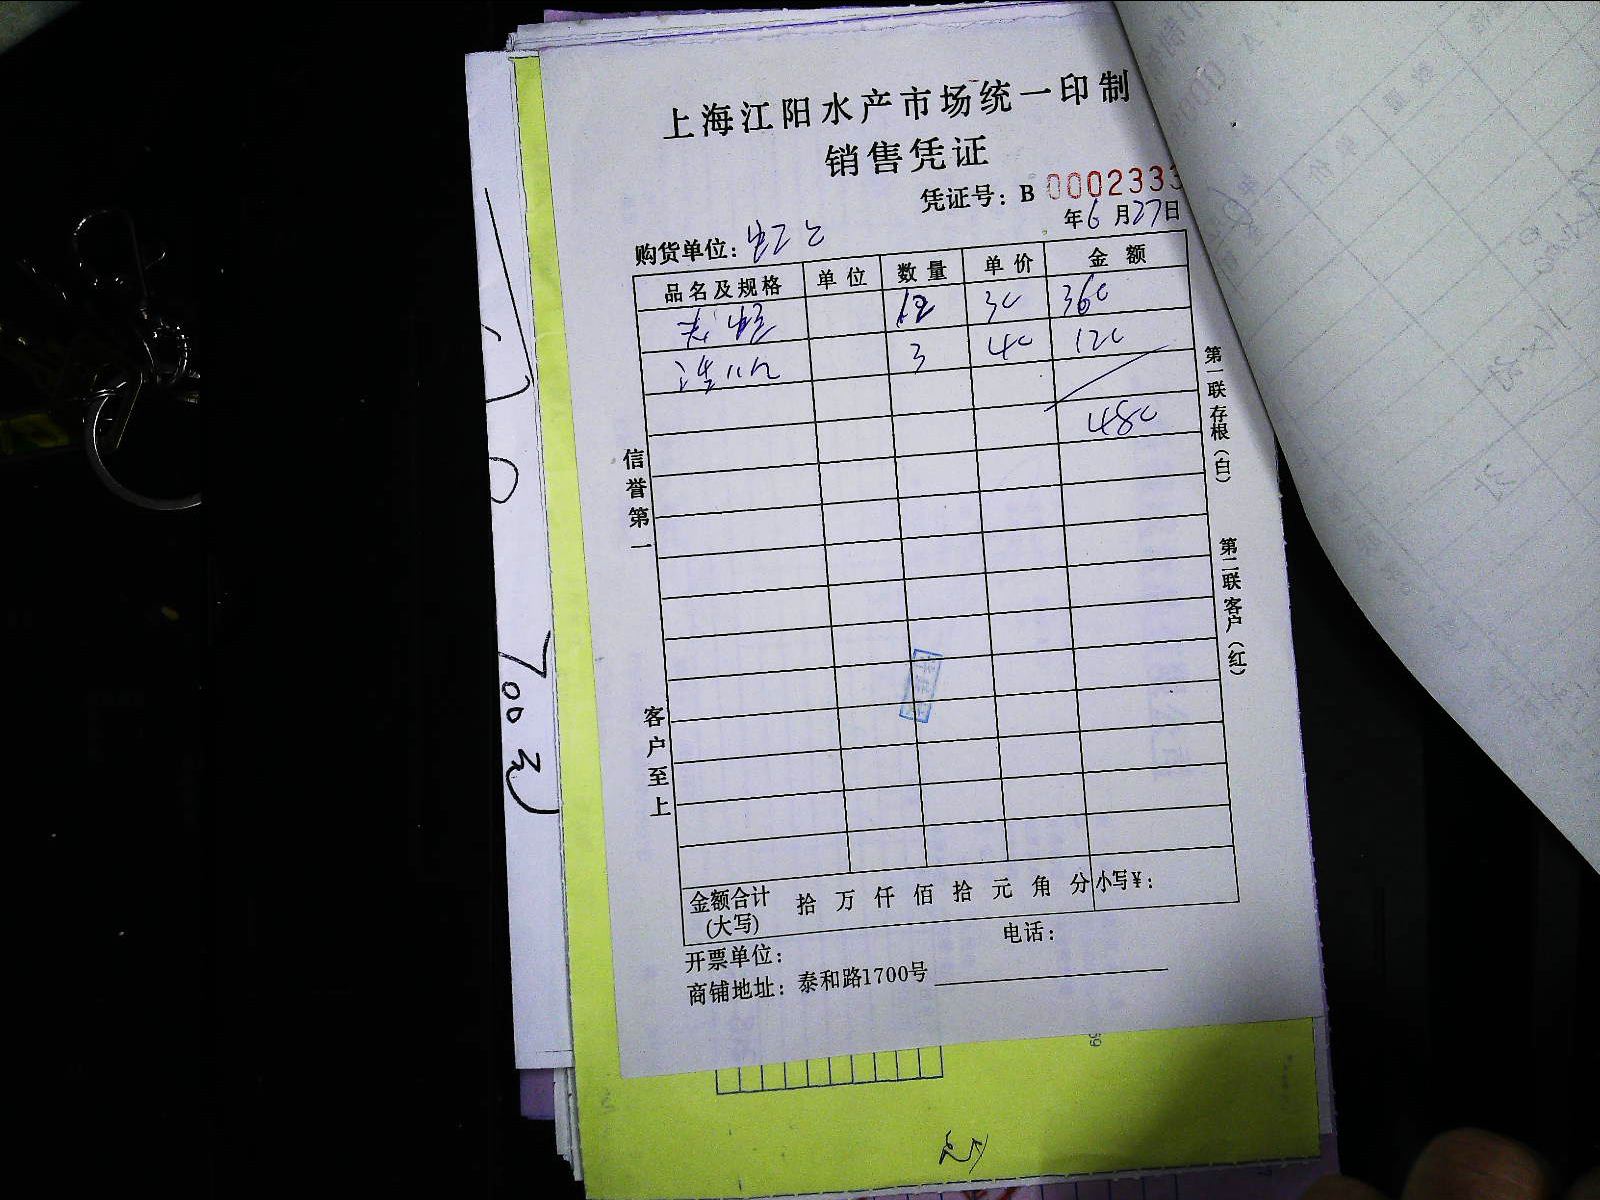 上海江阳水产市场统一印制
销售凭证
凭证号：B 0002333
年6月27日
购货单位：
品名及规格 单位 数量 单价 金额
12 30 360
3 40 120
480
信誉第一
客户至上
第一联存根（白）
第二联客户（红）
金额合计（大写） 拾 万 仟 佰 拾 元 角 分 小写￥：
开票单位： 电话：
商铺地址：泰和路1700号
700元